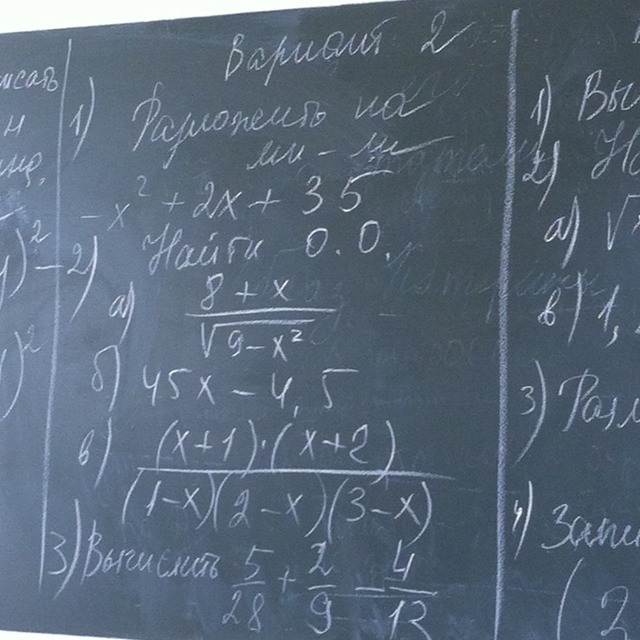 исать
н
1)² -
)²
Вариант 2
1) Разложить на
мн-ли
-x² + 2x + 35
2) Найти О.О.
а) 8 + x / √9-x²
б) 45x - 4,5
в) (x+1)·(x+2) / (1-x)(2-x)(3-x)
3) Вычислить 5/28 + 2/9 - 4/13
1) Вы
2) Н
а) √
в) 1,
3) Разл
4) Запи
(2